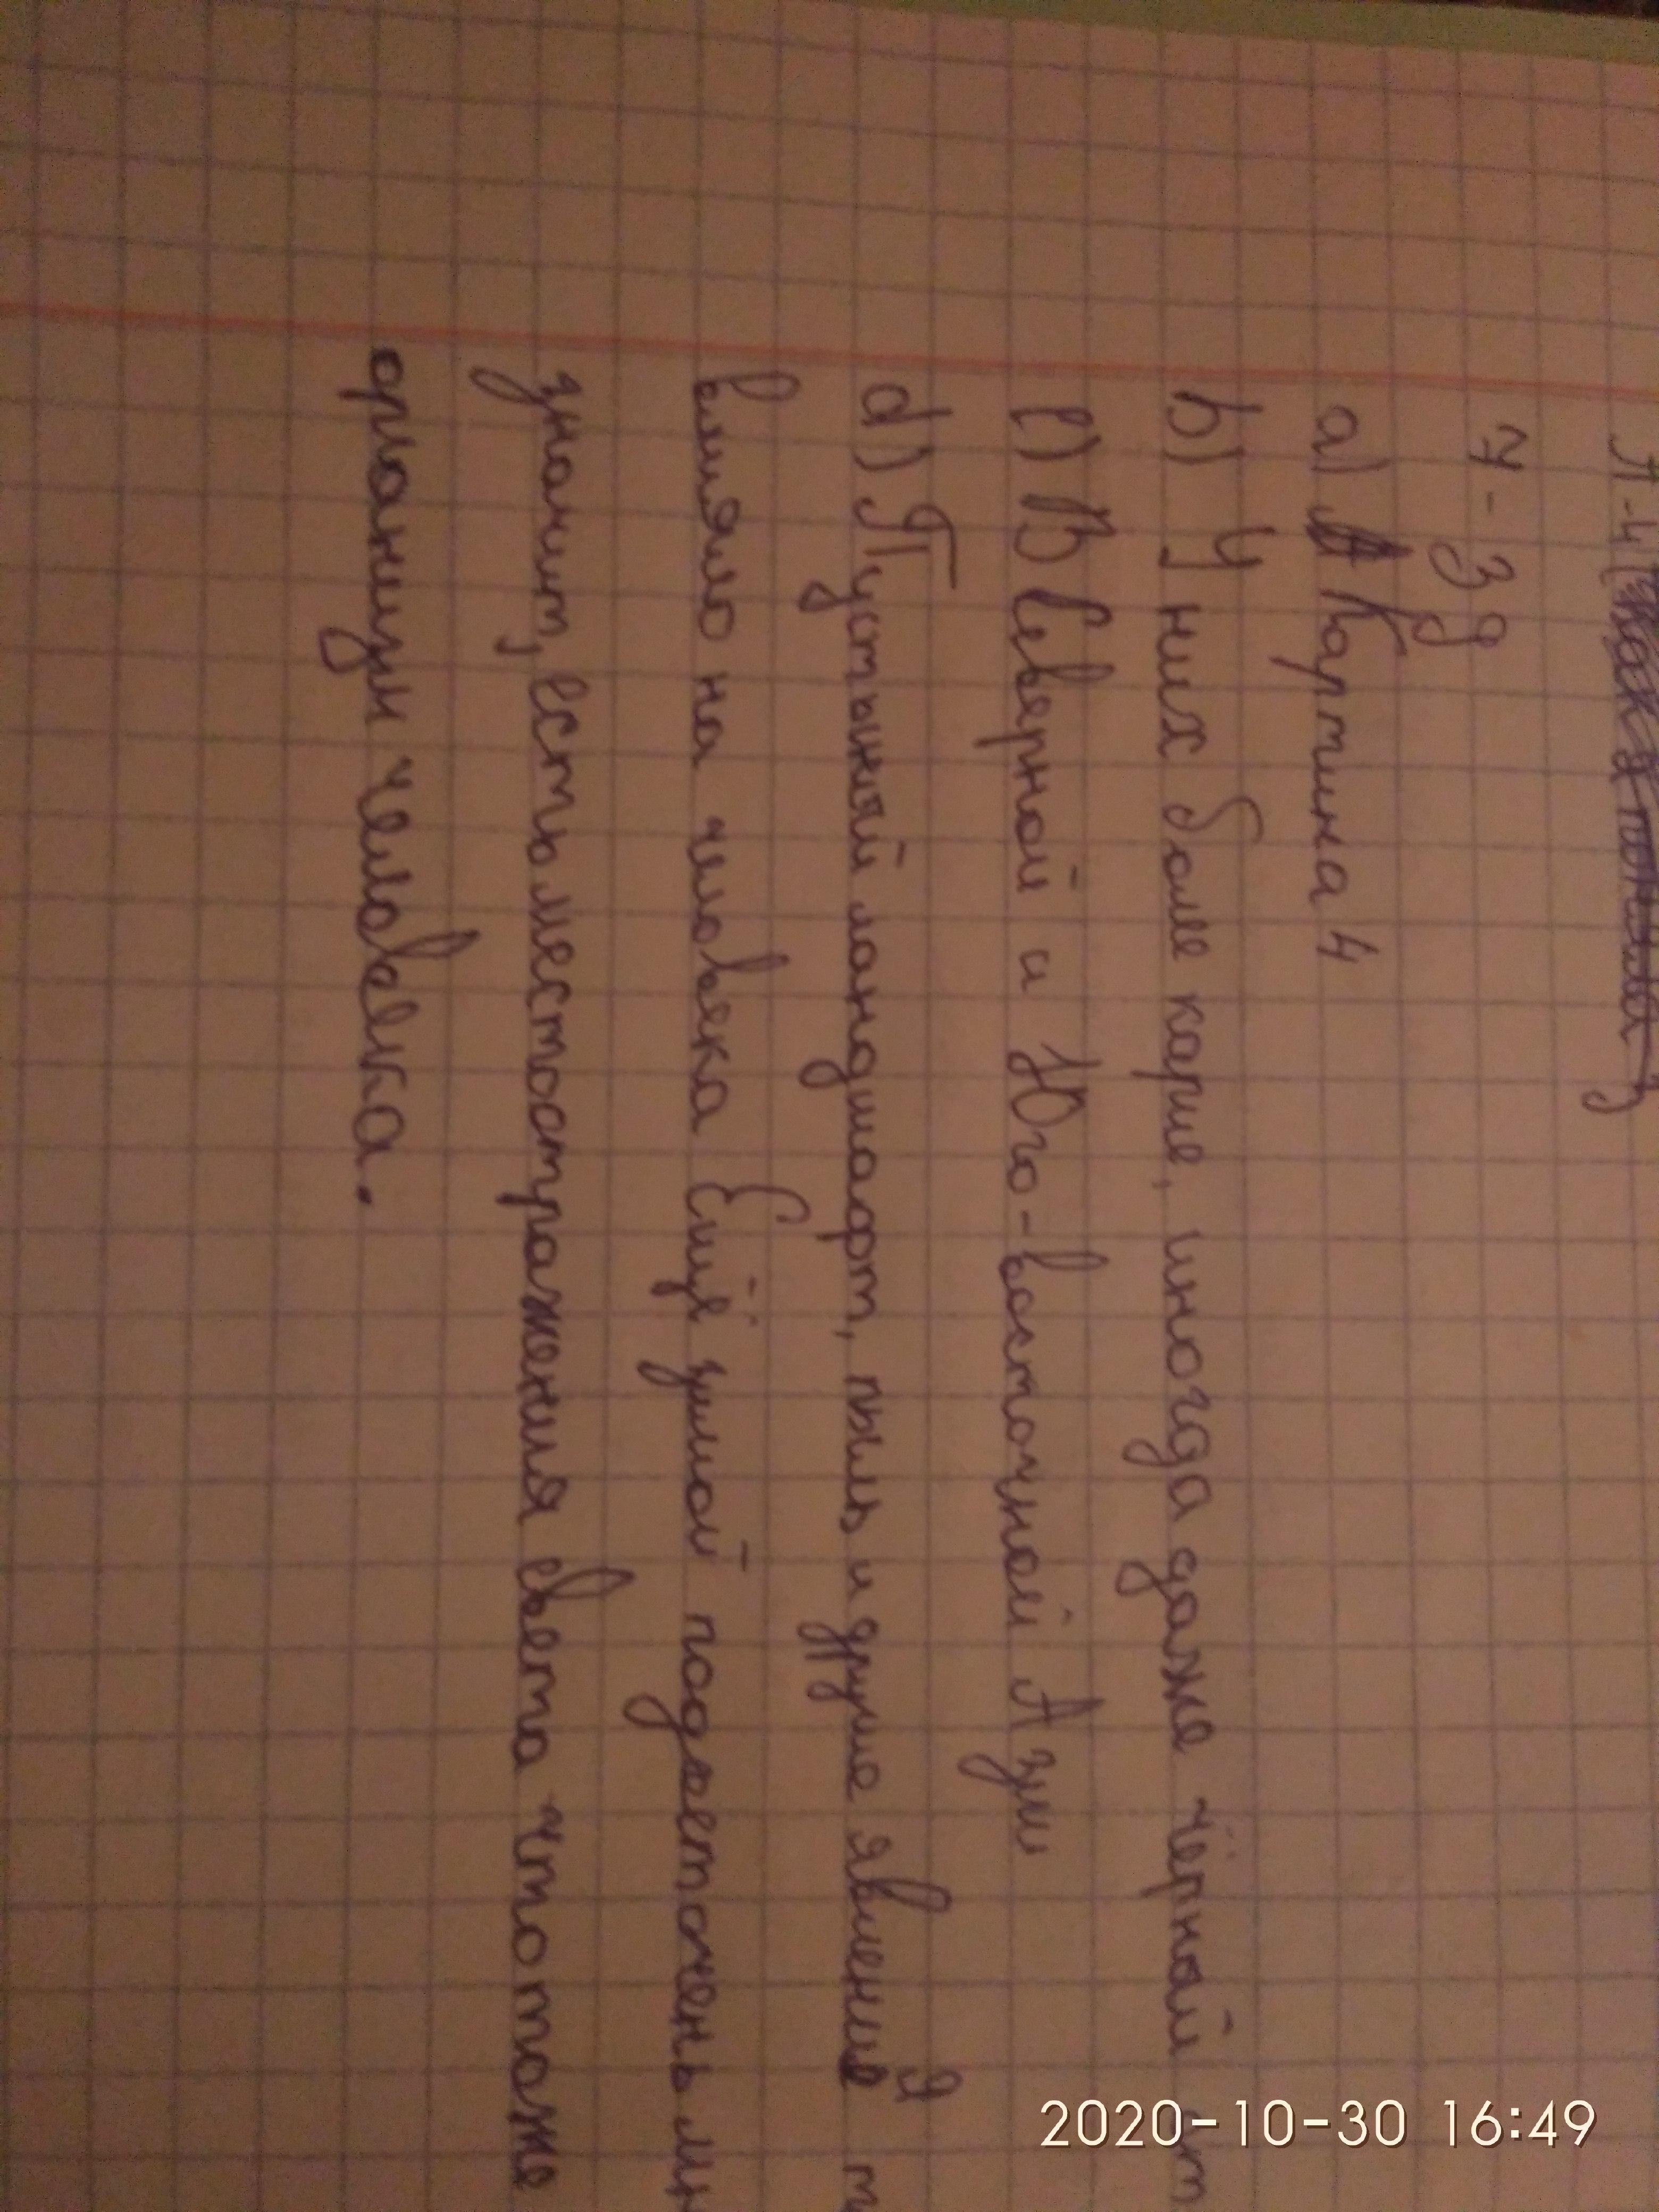 Л-4
4-39
a) Картина 4
b) У них боле карие, иногда даже чёрный
c) В Северной и Юго-восточной Азии
d) Пустыняй ландшафт, пыль и другие явления
влияло на человяка Ещё зимой подает очень
значит, есть место отражения света что тоже
органицм человека.
2020-10-30 16:49